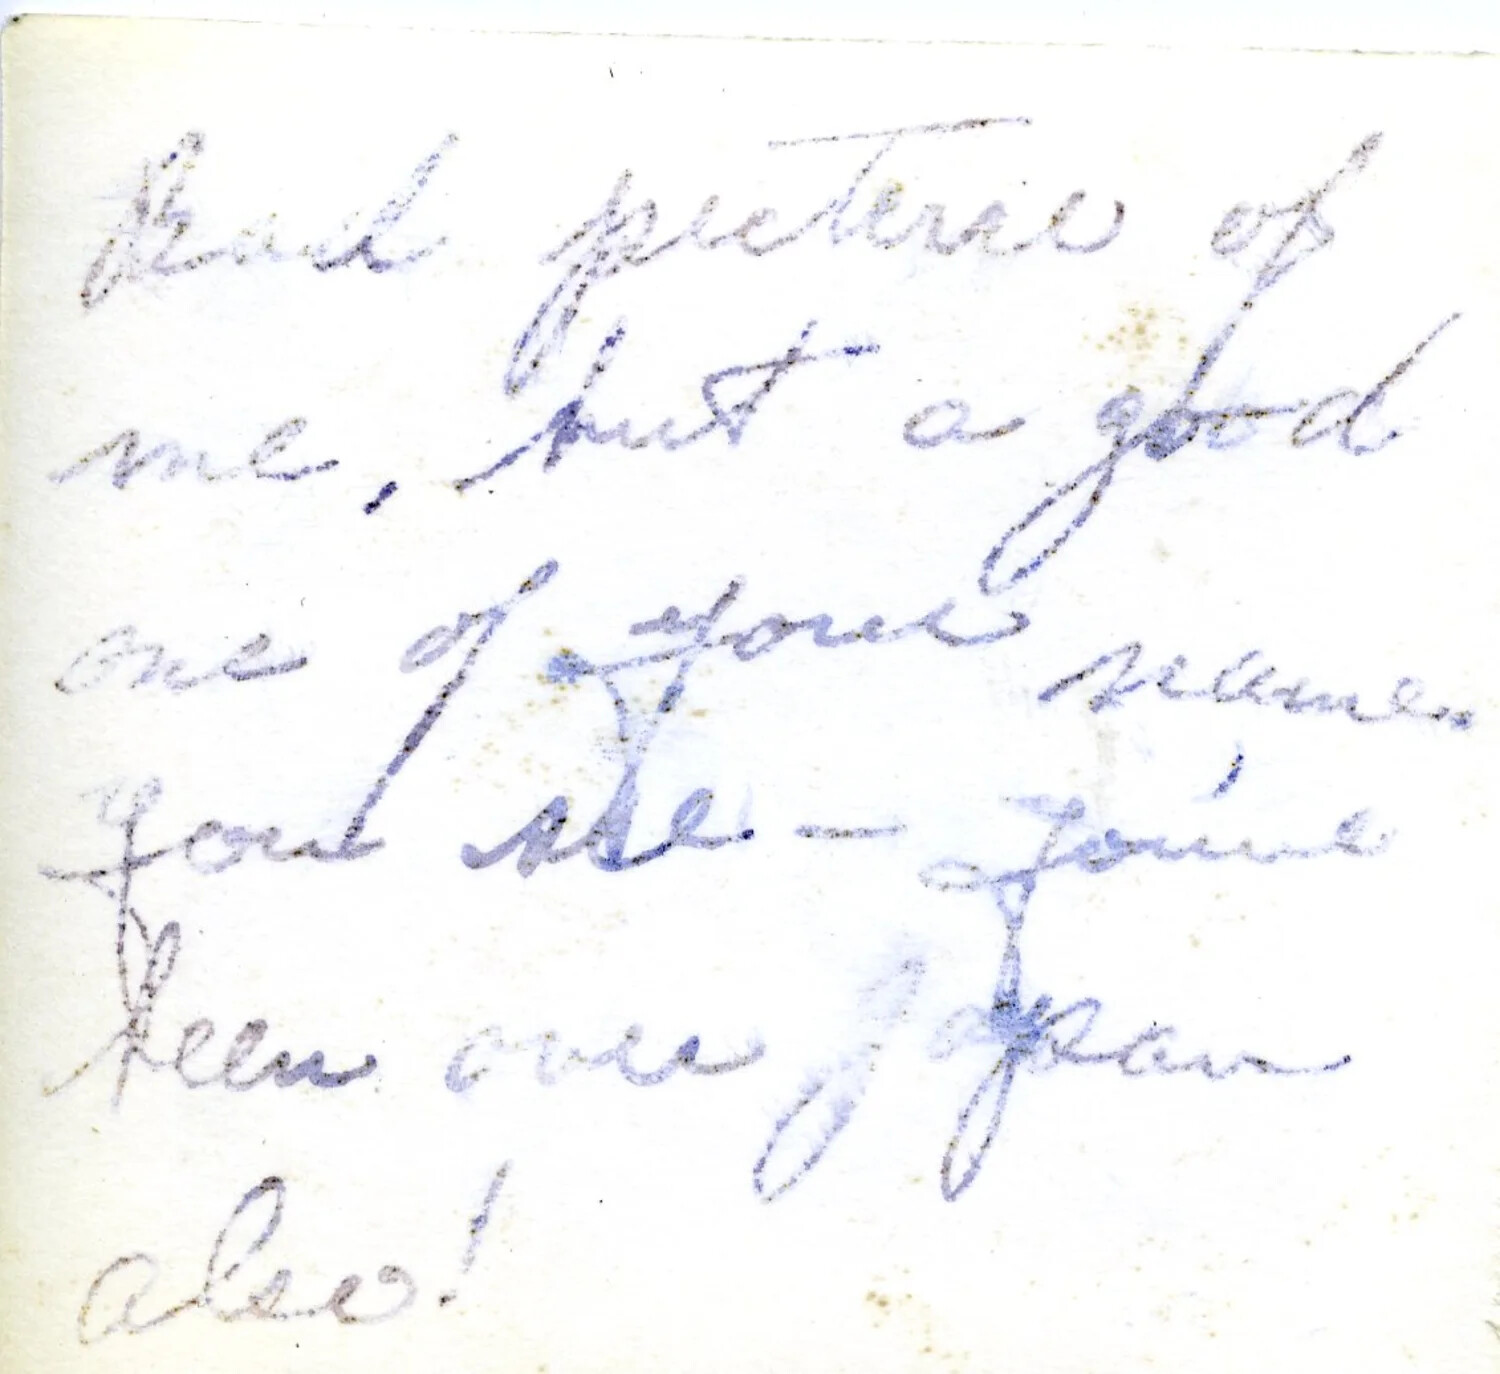 Bad picture of
me, but a good
one of your name.
you see - you've
been over Japan
also!